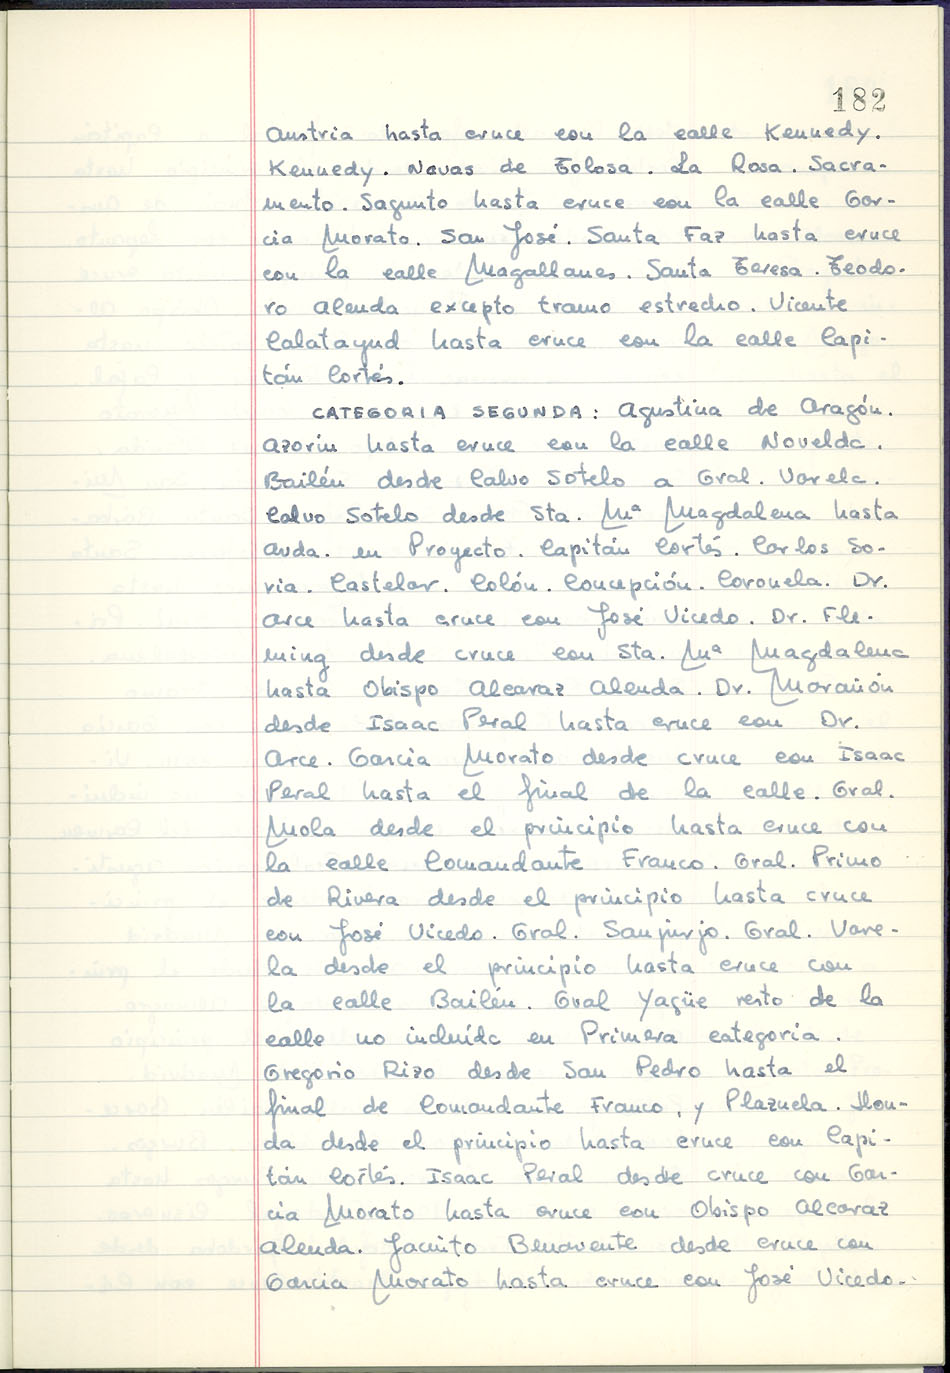 182
Austria hasta cruce con la calle Kennedy.
Kennedy. Navas de Tolosa. La Rosa. Sacra-
mento. Sagunto hasta cruce con la calle Gar-
cia Morato. San José. Santa Faz hasta cruce
con la calle Magallanes. Santa Teresa. Teodo-
ro Alenda excepto tramo estrecho. Vicente
Calatayud hasta cruce con la calle Capi-
tán Cortés.
CATEGORIA SEGUNDA: Agustina de Aragón.
Azorín hasta cruce con la calle Novelda.
Bailén desde Calvo Sotelo a Gral. Varela.
Calvo Sotelo desde Sta. Mª Magdalena hasta
avda. en Proyecto. Capitán Cortés. Carlos So-
ria. Castelar. Colón. Concepción. Coronela. Dr.
Arce hasta cruce con José Vicedo. Dr. Fle-
ming desde cruce con Sta. Mª Magdalena
hasta Obispo Alcaraz Alenda. Dr. Marañón
desde Isaac Peral hasta cruce con Dr.
Arce. Garcia Morato desde cruce con Isaac
Peral hasta el final de la calle. Gral.
Mola desde el principio hasta cruce con
la calle Comandante Franco. Gral. Primo
de Rivera desde el principio hasta cruce
con José Vicedo. Gral. Sanjurjo. Gral. Vare-
la desde el principio hasta cruce con
la calle Bailén. Gral Yagüe resto de la
calle no incluída en Primera categoria.
Gregorio Rizo desde San Pedro hasta el
final de Comandante Franco, y Plazuela. Hon-
da desde el principio hasta cruce con Capi-
tán Cortés. Isaac Peral desde cruce con Gar-
cia Morato hasta cruce con Obispo Alcaraz
Alenda. Jacinto Benavente desde cruce con
Garcia Morato hasta cruce con José Vicedo.